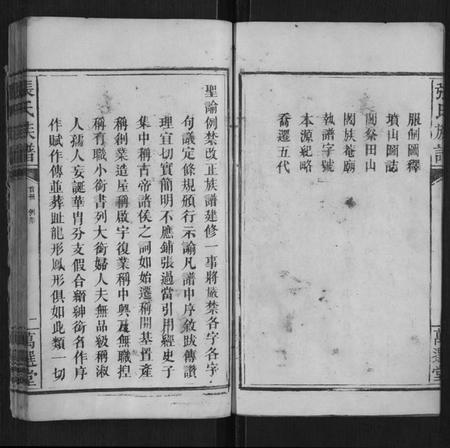 張氏族譜
萬選堂
服制圖釋
墳山圖誌
闔祭田山
闔族庵廟
執譜字號
本源紀略
喬遷五代
聖諭例禁改正族譜建修一事將嚴禁各字各字
句議定條規頒行示諭凡譜中序敘跋傳讚
理宜切實簡明不應鋪張過當引用經史子
集中稱古帝諸侯之詞如始遷稱開基置產
稱創業造屋稱啟宇復業稱中興及無職揑
稱有職小銜書列大銜婦人夫無品級稱淑
人孺人妄誕華冑分支假合縉紳銜名作序
作賦作傳並葬趾龍形鳳形俱如此類一切
張氏族譜
首卷 例禁
一
萬選堂